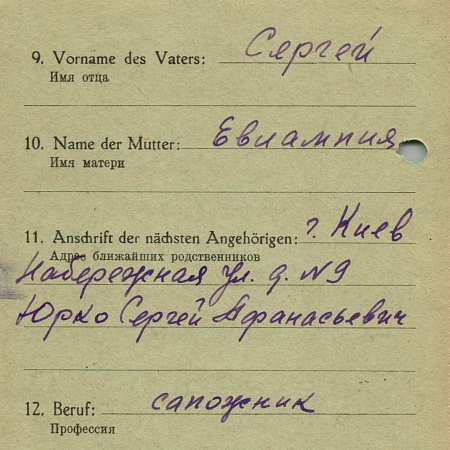 9. Vorname des Vaters: Сергей
Имя отца
10. Name der Mutter: Евлампия
Имя матери
11. Anschrift der nächsten Angehörigen: г. Киев
Адрес ближайших родственников
Набережная ул. д. N9
Юрко Сергей Афанасьевич
12. Beruf: сапожник
Профессия